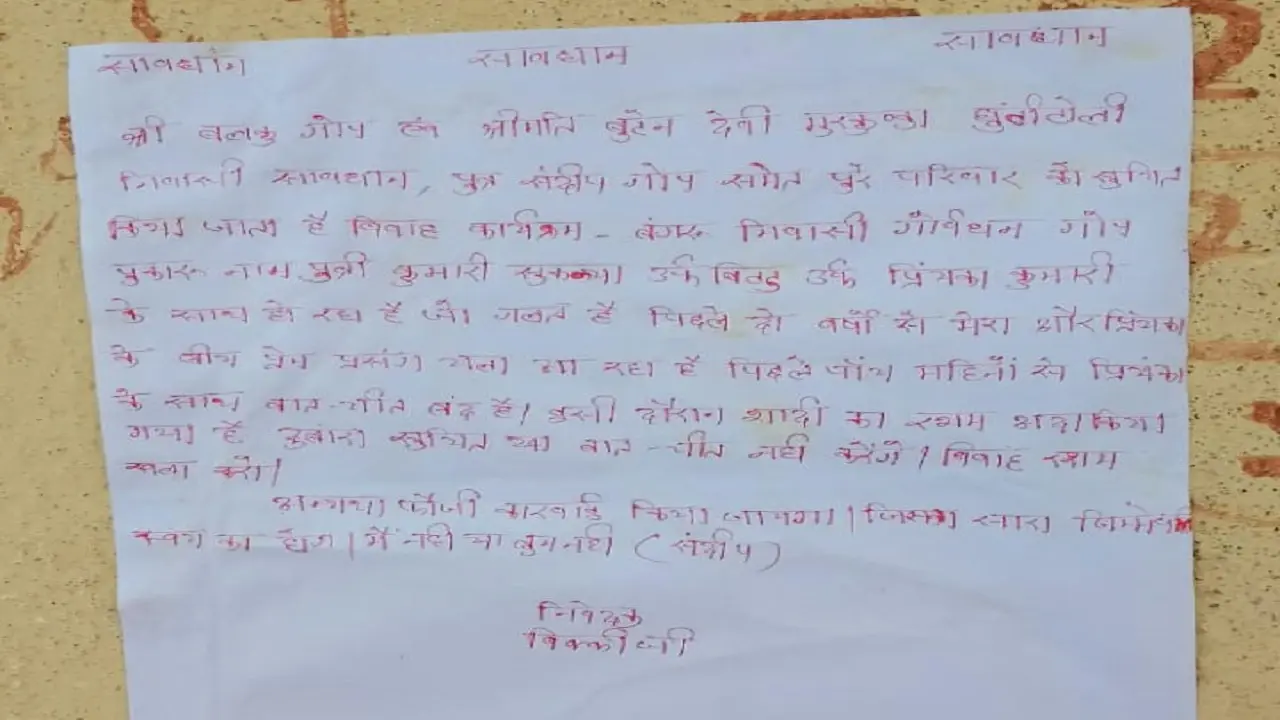 सावधान सावधान सावधान
श्री बलकु गोप एवं श्रीमति बुटेन देवी मुरकुण्डा
निवासी सावधान, पुत्र संदीप गोप समेत पुरे परिवार को सुचित
किया जाता है विवाह कार्यक्रम - बंगरू निवासी गोंर्वधन गोप
नाम पुत्री कुमारी उर्फ उर्फ प्रियंका कुमारी
के साथ हो रहा है जो गलत है पिछले दो वर्षों से मेरा और प्रियंका
के बीच प्रेम प्रसंग चला आ रहा है पिछले पाँच महिनों से प्रियंका
के साथ बात-चीत बंद है। इसी दौरान शादी का रशम अदा किया
गया है दुबारा सुचित या बात-चीत नही करेंगे। विवाह रशम
करो।
अन्यथा फौजी कारवाई किया जायगा। जिसका सारा
स्वयं का होगा। मैं नही या तुम नही (संदीप)
निवेदक
विक्की जी